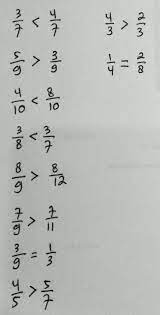 3/7 < 4/7
5/9 > 3/9
4/10 < 8/10
3/8 < 3/7
8/9 > 8/12
7/9 > 7/11
3/9 = 1/3
4/5 > 5/7
4/3 > 2/3
1/4 = 2/8